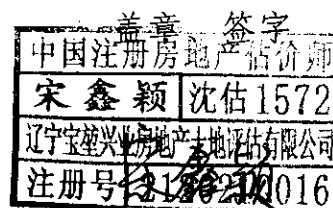 盖章 签字
中国注册房地产估价师
宋鑫颖 沈估1572
辽宁宝堃兴业房地产土地评估有限公司
注册号 016